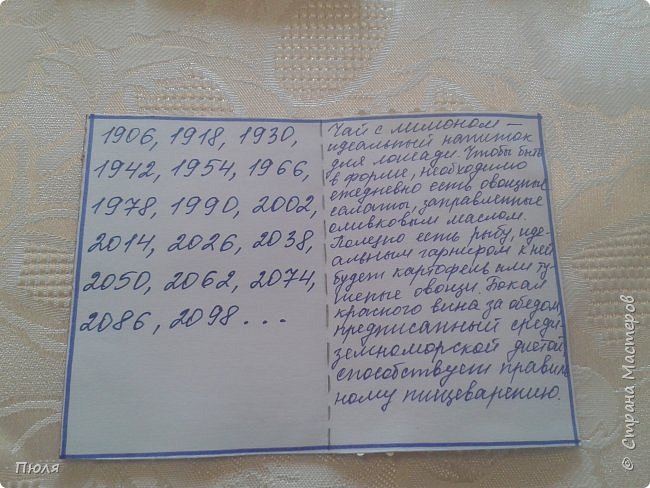 1906, 1918, 1930,
1942, 1954, 1966,
1978, 1990, 2002,
2014, 2026, 2038,
2050, 2062, 2074,
2086, 2098...
Чай с лимоном —
идеальный напиток
для лошади. Чтобы быть
в форме, необходимо
ежедневно есть овощные
салаты, заправленные
оливковым маслом.
Полезно есть рыбу, иде-
альным гарниром к ней
будет картофель или ту-
шеные овощи. Бокал
красного вина за обедом,
предписанный среди-
земноморской диетой,
способствует правиль
ному пищеварению.
Пюля
© Страна Мастеров